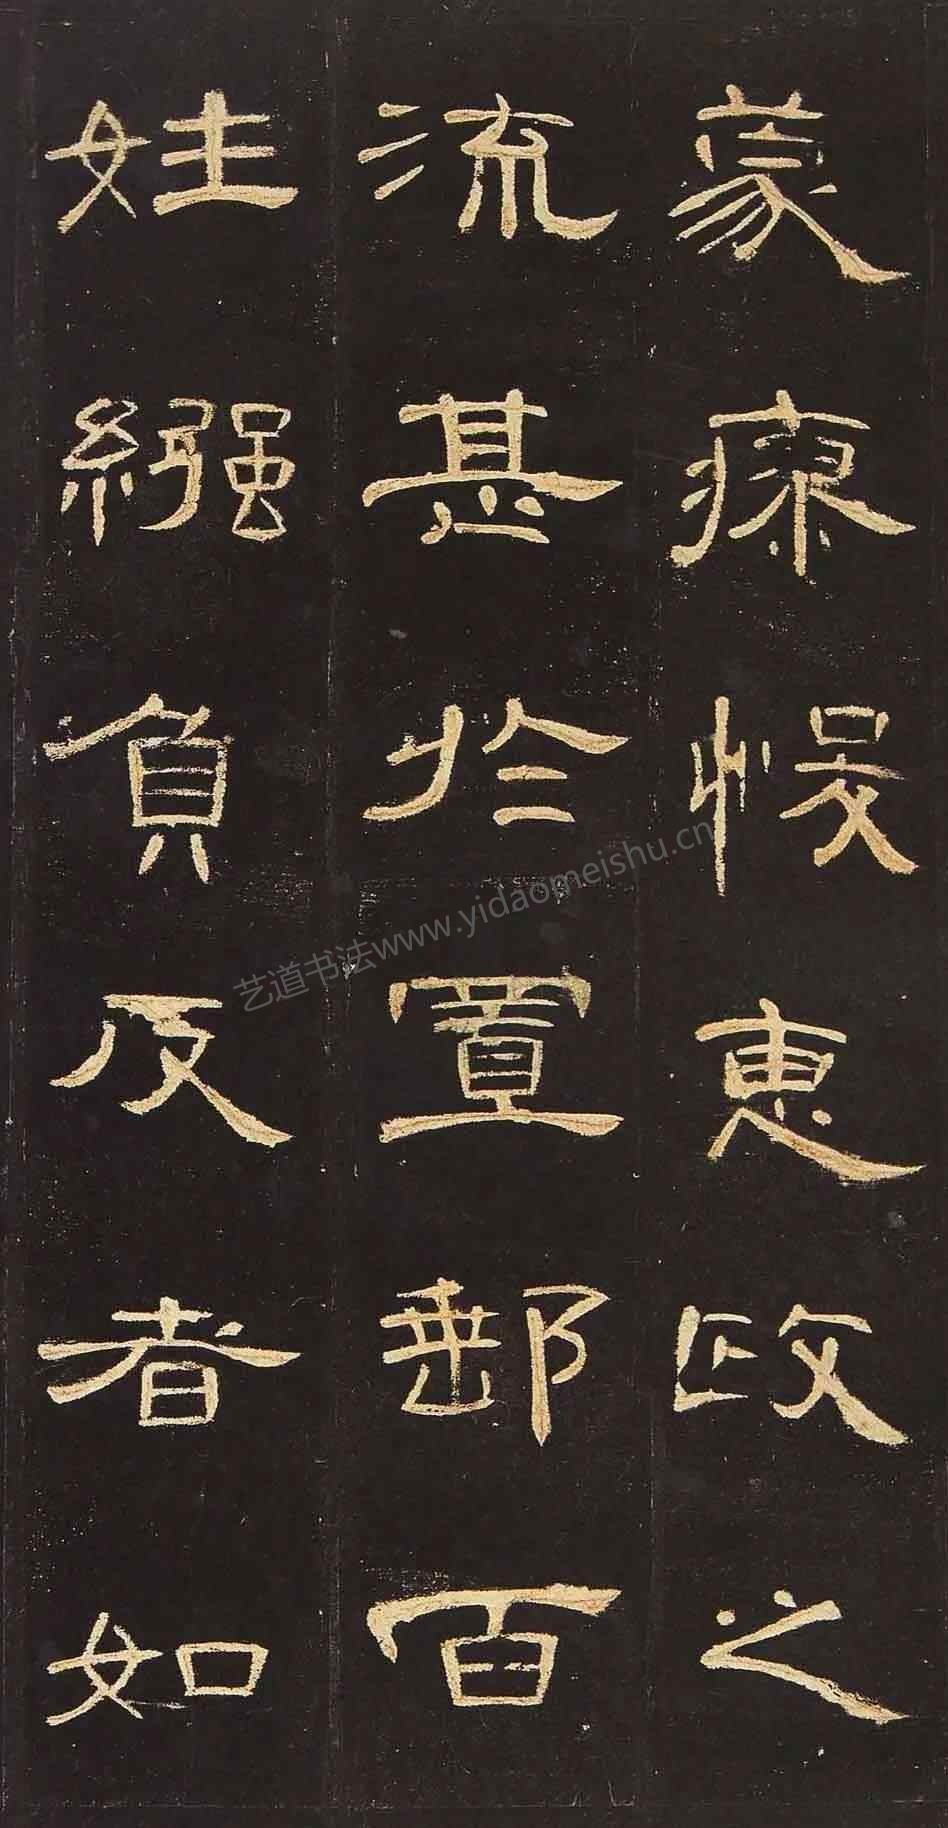 蒙瘳悞惠政之
流甚於置郵百
姓繦負反者如
艺道书法www.yidaomeishu.cn